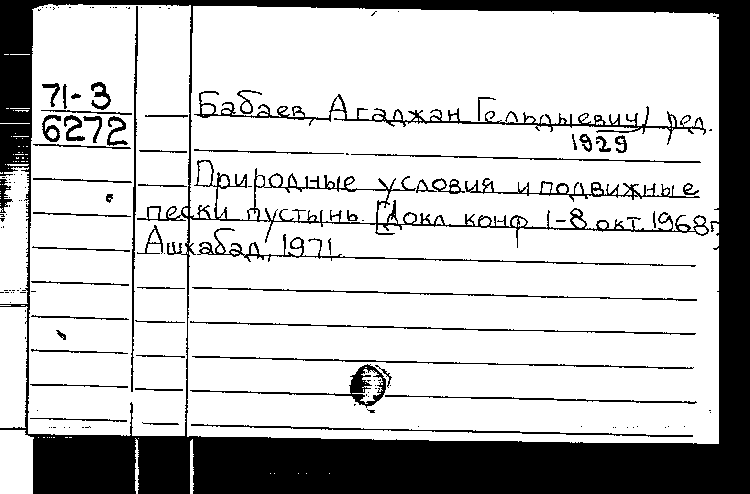 71-3
6272
Бабаев, Агаджан Гельдыевич/ ред.
1929
Природные условия и подвижные
пески пустынь [Докл. конф 1-8 окт. 1968г]
Ашхабад, 1971.